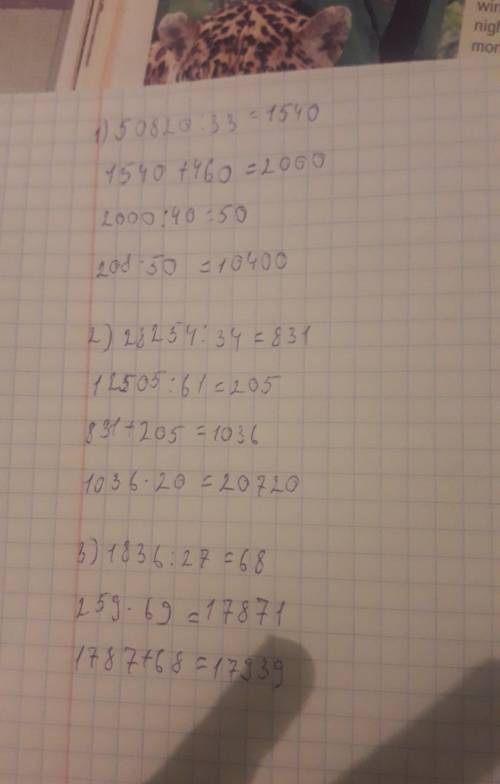 win
nigh
mor
1) 50820:33=1540
1540+460=2000
2000:40=50
208·50=10400
2) 28254:34=831
12505:61=205
831+205=1036
1036·20=20720
3) 1836:27=68
259·69=17871
1787+68=17939